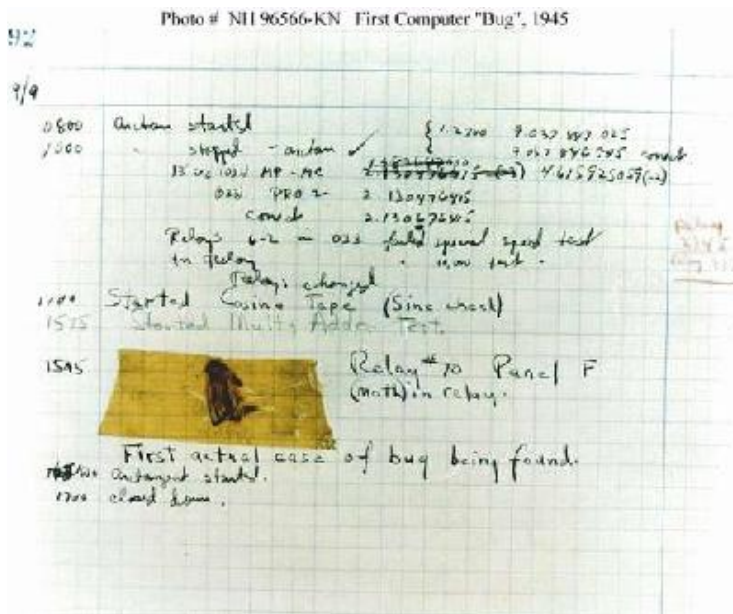 Photo # NH 96566-KN First Computer "Bug", 1945
92
9/9
0800 antan started
1000 " stopped - antan ✓
{ 1.2700 9.037 847 025
9.037 846 995 correct
13"uc (032) MP - MC 4.615925059(-2)
(033) PRO 2 2.130476415
correct 2.130676415
Relays 6-2 in 033 failed special speed test
in relay " 11.00 test .
Relays changed
1100 Started Cosine Tape (Sine check)
1525 Started Mult+Adder Test.
1545 Relay #70 Panel F
(moth) in relay.
First actual case of bug being found.
antangent started.
1700 closed down.
Relay